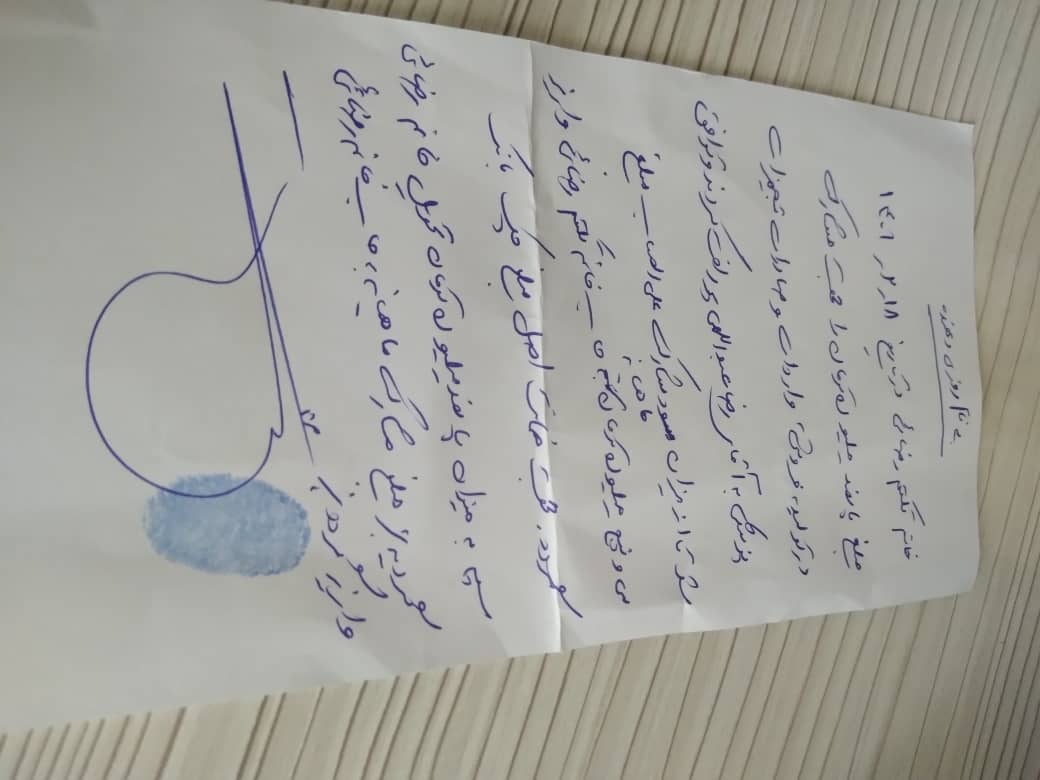 به نام روزی دهنده
خانم تکتم رضائی در تاریخ ۱۴۰۱٫۲٫۱۸
مبلغ پانصد میلیون تومان را جهت مشارکت
در تولید، فروش، واردات و صادرات تجهیزات
پزشکی به آقای رضا عبداللهی پور پرداخت کردند و توافق
شد تا از میزان سود مشارکت علی الحساب مبلغ
ماهیانه
سی و پنج میلیون تومان به حساب خانم تکتم رضائی واریز
گردد. جهت ضمانت اصل مبلغ چک بانک
سپه به میزان پانصد میلیون تومان تحویل خانم رضائی
گردید، مبلغ مشارکت ماهیانه به حساب خانم رضائی
واریز گردد